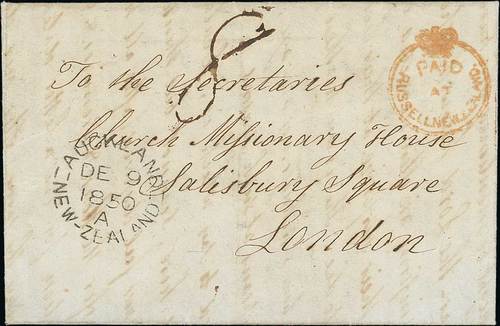 To the Secretaries
Church Missionary House
Salisbury Square
London
PAID
AT
RUSSELL NEW ZEALAND
AUCKLAND
DE 9
1850
A
NEW-ZEALAND